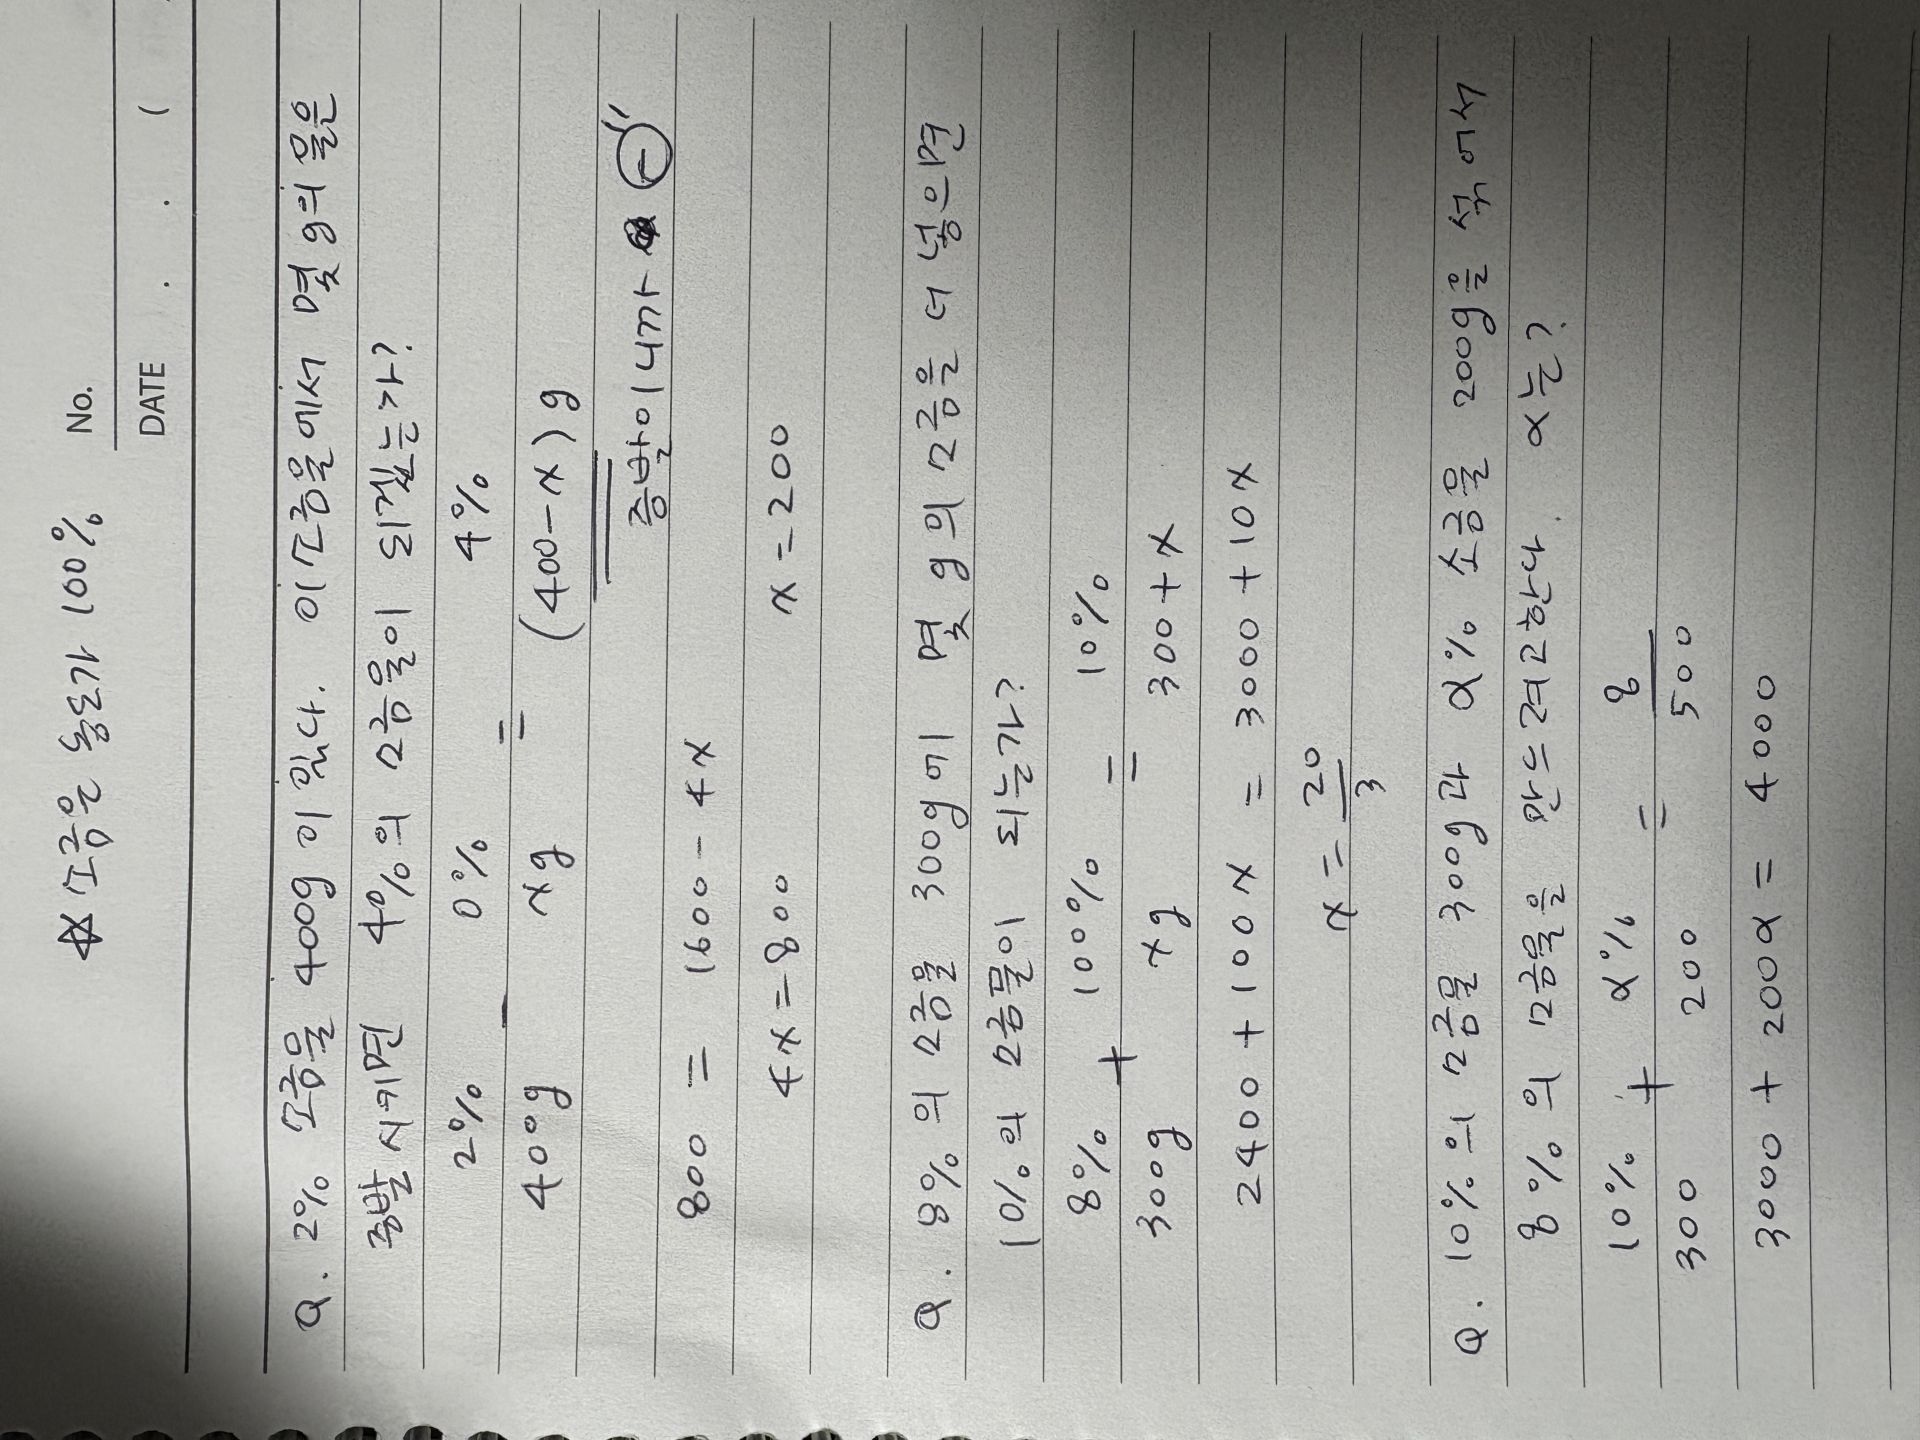 No.
DATE . . (
☆ 소금은 농도가 100%
Q. 2% 소금물 400g이 있다. 이 소금물에서 몇 g의 물은
증발시키면 4%의 소금물이 되겠는가?
2% 0% 4%
400g - xg = (400-x)g
증발이니까 ⊖"
800 = 1600 - 4x
4x = 800 x = 200
Q. 8%의 소금물 300g에 몇 g의 소금을 더 넣으면
10%의 소금물이 되는가?
8% 100% 10%
300g + xg = 300+x
2400 + 100x = 3000 + 10x
x = 20/3
Q. 10%의 소금물 300g과 α% 소금물 200g을 섞어서
8%의 소금물을 만드려고한다. α는?
10% α% 8
300 + 200 = 500
3000 + 200α = 4000